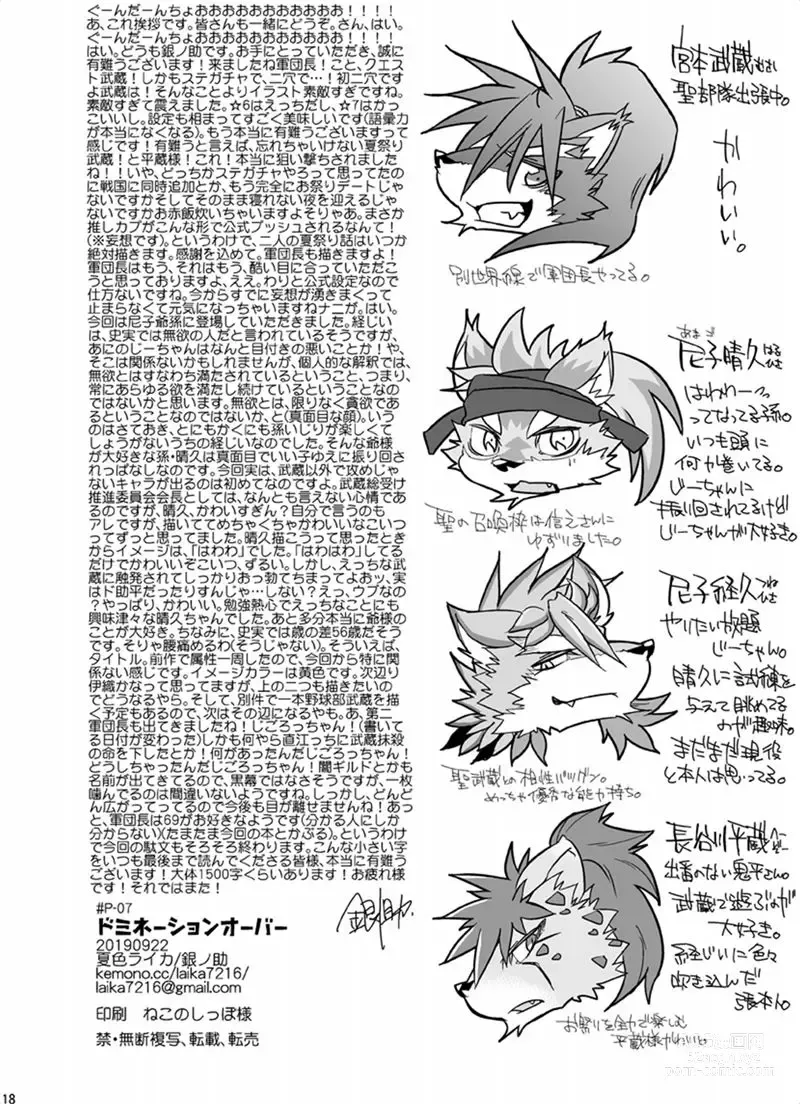 ぐーんだーんちょおおおおおおおおおおお！！！！
あ、これ挨拶です。皆さんも一緒にどうぞ。さん、はい。
ぐーんだーんちょおおおおおおおおおおお！！！！
はい。どうも銀ノ助です。お手にとっていただき、誠に
有難うございます！来ましたね軍団長！こと、クエス
ト武蔵！しかもステガチャで、二穴で…！初二穴です
よ武蔵は！そんなことよりイラスト素敵すぎですね。
素敵すぎて震えました。☆6はえっちだし、☆7はかっ
こいいし。設定も相まってすごく美味しいです(語彙力
が本当になくなる)。もう本当に有難うございますって
感じです！有難うと言えば、忘れちゃいけない夏祭り
武蔵！と平蔵様！これ！本当に狙い撃ちされました
ね！！いや、どっちかステガチャやろって思ってたの
に戦国に同時追加とか、もう完全にお祭りデートじゃ
ないですかそしてそのまま寝れない夜を迎えるじゃ
ないですかお赤飯炊いちゃいますよそりゃあ。まさか
推しカプがこんな形で公式プッシュされるなんて！
(※妄想です)。というわけで、二人の夏祭り話はいつか
絶対描きます。感謝を込めて。軍団長も描きますよ！
軍団長はもう、それはもう、酷い目に合っていただこ
うと思っておりますよ、ええ。わりと公式設定なので
仕方ないですね。今からすでに妄想が湧きまくって
止まらなくて元気になっちゃいますねナニが。はい。
今回は尼子爺孫に登場していただきました。経じい
は、史実では無欲の人だと言われているそうですが、
あにのじーちゃんはなんと目付きの悪いことか！や、
そこは関係ないかもしれませんが、個人的な解釈では、
無欲とはすなわち満たされているということ、つまり、
常にあらゆる欲を満たし続けているということなの
ではないかと思います。無欲とは、限りなく貪欲であ
るということなのではないか、と(真面目な顔)。いう
のはさておき、とにもかくにも孫いじりが楽しくて
しょうがないうちの経じいなのでした。そんな爺様
が大好きな孫・晴久は真面目でいい子ゆえに振り回さ
れっぱなしなのです。今回実は、武蔵以外で攻めじゃ
ないキャラが出るのは初めてなのですよ。武蔵総受け
推進委員会会長としては、なんとも言えない心情であ
るのですが、晴久、かわいすぎん？自分で言うのも
アレですが、描いててめちゃくちゃかわいいなこいつ
ってずっと思ってました。晴久描こうって思ったとき
からイメージは、「はわわ」でした。「はわはわ」してる
だけでかわいいぞこいつ、ずるい。しかし、えっちな武
蔵に触発されてしっかりおっ勃てちまってよおッ、実
はド助平だったりすんじゃ…しない？えっ、ウブなの
？やっぱり、かわいい。勉強熱心でえっちなことにも
興味津々な晴久ちゃんでした。あと多分本当に爺様の
ことが大好き。ちなみに、史実では歳の差56歳だそう
です。そりゃ腰痛めるわ(そうじゃない)。そういえば、
タイトル。前作で属性一周したので、今回から特に関
係ない感じです。イメージカラーは黄色です。次辺り
伊織かなって思ってますが、上の二つも描きたいの
でどうなるやら。そして、別件で一本野球部武蔵を描
く予定もあるので、次はその辺になるやも。あ、第二
軍団長も出てきましたね！じごろっちゃん！(書いて
る日付が変わった)しかも何やら直江っちに武蔵抹殺
の命を下したとか！何があったんだじごろっちゃん！
どうしちゃったんだじごろっちゃん！闇ギルドとかも
名前が出てきてるので、黒幕ではなさそうですが、一枚
噛んでるのは間違いないようですね。しっかし、どんど
ん広がってってるので今後も目が離せませんね！あっ
と、軍団長は69がお好きなようです(分かる人にしか
分からない)(たまたま今回の本とかぶる)。というわけ
で今回の駄文もそろそろ終わります。こんな小さい字
をいつも最後まで読んでくださる皆様、本当に有難う
ございます！大体1500字くらいあります！お疲れ様
です！それではまた！
銀ノ助
#P-07
ドミネーションオーバー
20190922
夏色ライカ/銀ノ助
kemono.cc/laika7216/
laika7216@gmail.com
印刷　ねこのしっぽ様
禁・無断複写、転載、転売
18
宮本武蔵むさし
聖部隊出張中。
かわいい。
別世界線で軍団長やってる。
あまご
尼子晴久はるひさ
はわわーっ
ってなってる孫。
いつも頭に
何か巻いてる。
じーちゃんに
振り回されてるけど
じーちゃんが大好き。
聖の召喚枠は信之さんに
ゆずりました。
尼子経久つねひさ
ヤリたい放題
じーちゃん。
晴久に試練を
与えて眺めてる
のが趣味。
まだまだ現役
と本人は思ってる。
聖武蔵との相性バツグン。
めっちゃ優秀な能力持ち。
長谷川平蔵
出番のない鬼平さん。
武蔵で遊ぶのが
大好き。
経じいに色々
吹き込んだ
張本人。
お祭りを全力で楽しむ
平蔵様かわいい。